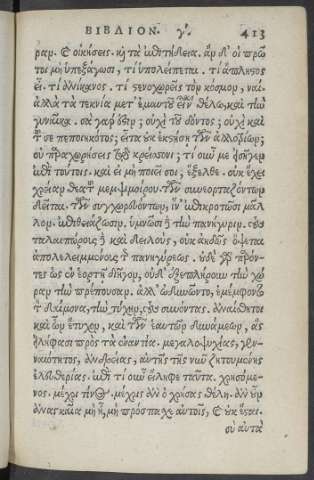 ΒΙΒΛΙΟΝ. γʹ. 413
ραν. καὶ οἰκήσεις. καὶ τὰ ἐπιτήδεια. ἂν δ' οἱ πρῶ
τοι μὴ ὑπεξάγωσι, τί ὑπολείπεται. τί ἄπληστος
εἶ. τί ἀνίκανος. τί στενοχωρεῖς τὸν κόσμον, ναί.
ἀλλὰ τὰ τεκνία μετ' ἐμαυτοῦ εἶναι θέλω, καὶ τὴν
γυναῖκα. σὰ γάρ ἐστιν; οὐχὶ τοῦ δόντος; οὐχὶ καὶ
τοῦ σε πεποιηκότος; εἶτα οὐκ ἐκστήσῃ τῶν ἀλλοτρίων;
οὐ παραχωρήσεις τῷ κρείσσονι; τί οὖν με εἰσῆγεν
ἐπὶ τούτοις. καὶ εἰ μὴ ποιεῖ σοι, ἔξελθε. οὐκ ἔχει
χρείαν θεατοῦ μεμψιμοίρου. τῶν συνεορταζόντων
δεῖται. τῶν συγχορευόντων, ἵν' ἐπικροτῶσι μᾶλ
λον. ἐπιθειάζωσιν. ὑμνῶσι δὲ τὴν πανήγυριν. τοὺς
ταλαιπώρους δὲ καὶ δειλοὺς, οὐκ ἀηδῶς ὄψεται
ἀπολελειμμένους τῆς πανηγύρεως. οὐδὲ γὰρ παρόν
τες ὡς ἐν ἑορτῇ διῆγον, οὐδ' ἐξεπλήρουν τὴν χώ
ραν τὴν πρέπουσαν. ἀλλ' ὠδυνῶντο, ἐμέμφοντο
τὸν δαίμονα, τὴν τύχην, τοὺς συνόντας. ἀναίσθητοι
καὶ ὧν ἔτυχον, καὶ τῶν ἑαυτῶν δυνάμεων, ἃς
εἰλήφασι πρὸς τὰ ἐναντία. μεγαλοψυχίας, γεν
ναιότητος, ἀνδρείας, αὐτῆς τῆς νῦν ζητουμένης
ἐλευθερίας. ἐπὶ τί οὖν εἴληφα ταῦτα. χρησόμε
νος. μέχρι τίνος. μέχρις ἂν ὁ χρήσας θέλῃ. ἂν οὖν
ἀναγκαῖα μὴ ᾖ, μὴ πρόσπασχε αὐτοῖς, καὶ οὐκ ἔσται.
σὺ αὐτὰ